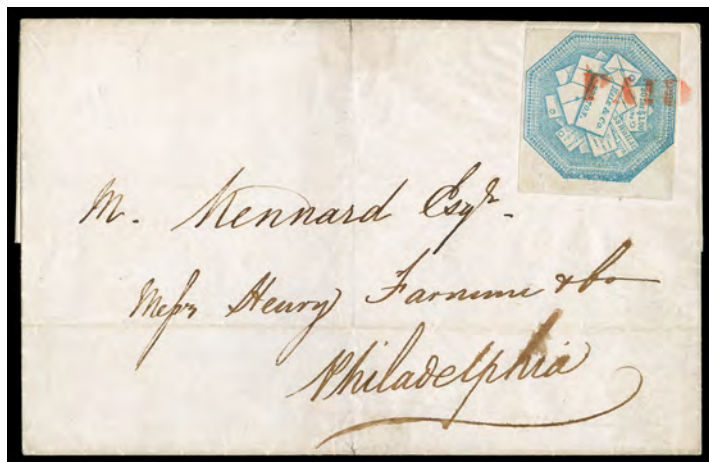 HALE & Co.
BOSTON.
M. Kennard Esqr.
Messrs Henry Farnum & Co
Philadelphia